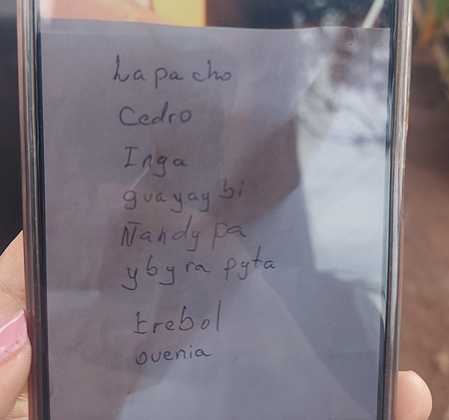 Lapacho
Cedro
Inga
guayaybi
Ñandypa
ybyra pyta
trebol
ovenia